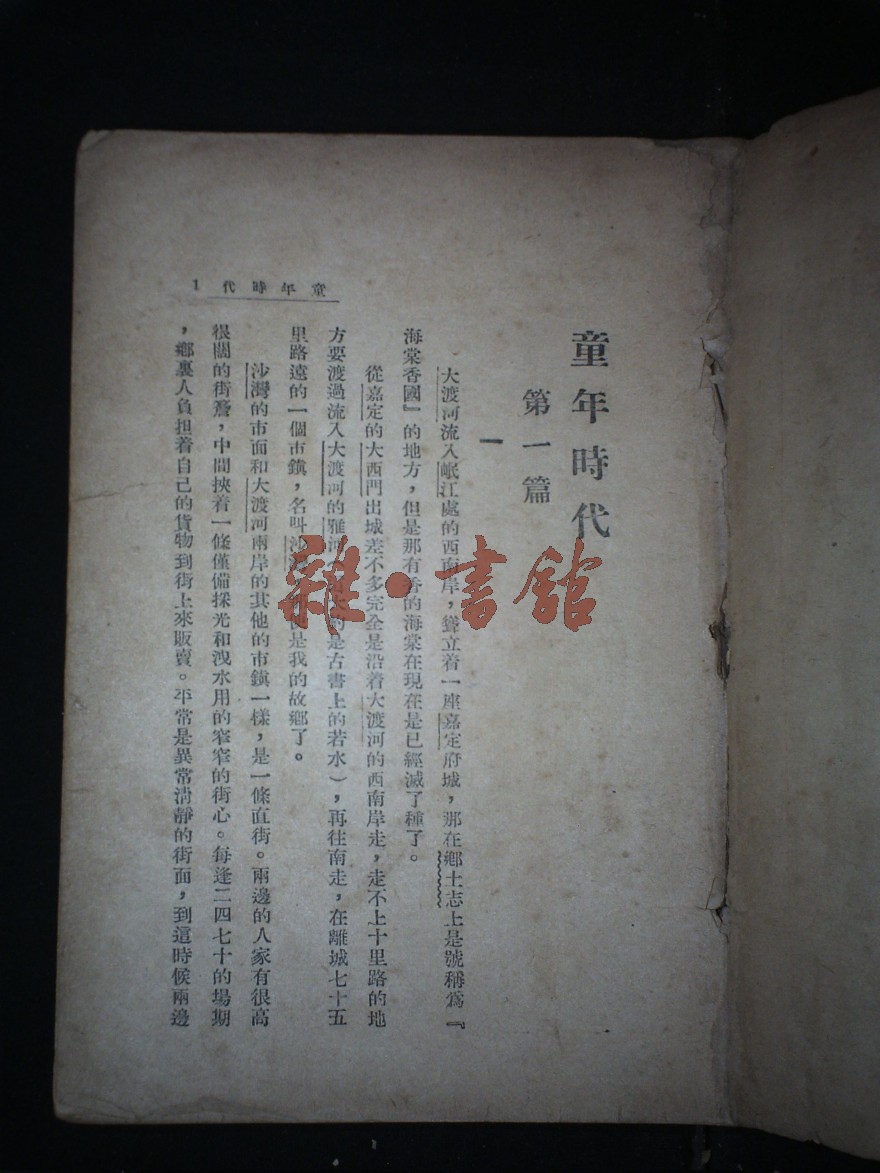 童年時代
第一篇
一
大渡河流入岷江處的西南岸，聳立着一座嘉定府城，那在鄉土志上是號稱爲『
海棠香國』的地方，但是那有香的海棠在現在是已經滅了種了。
從嘉定的大西門出城差不多完全是沿着大渡河的西南岸走，走不上十里路的地
方要渡過流入大渡河的雅河 的是古書上的若水），再往南走，在離城七十五
里路遠的一個市鎮，名叫沙 便是我的故鄉了。
沙灣的市面和大渡河兩岸的其他的市鎮一樣，是一條直街。兩邊的人家有很高
很闊的街簷，中間挾着一條僅備採光和洩水用的窄窄的街心。每逢二四七十的場期
，鄉裏人負担着自己的貨物到街上來販賣。平常是異常清靜的街面，到這時候兩邊
童年時代 1
雜·書館